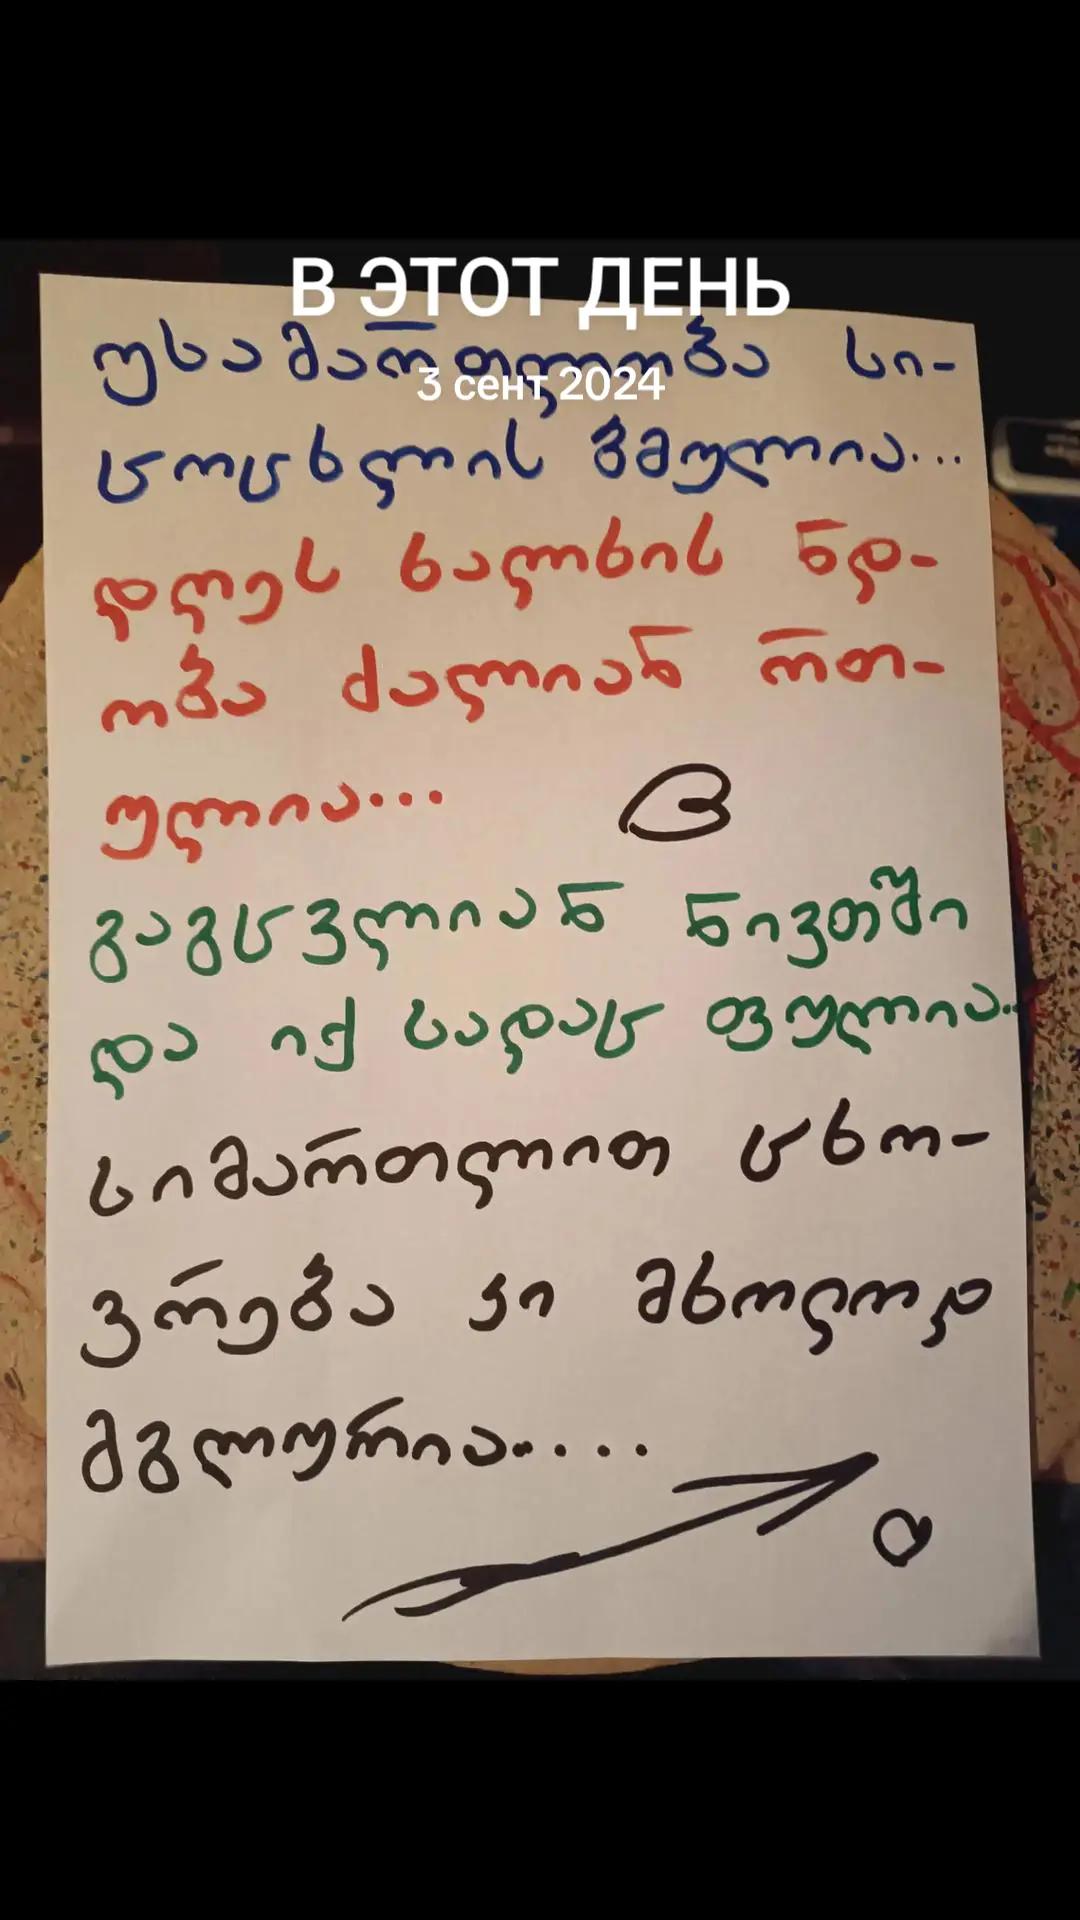 В ЭТОТ ДЕНЬ
უსამართლობა სი-
3 сент 2024
ცოცხლის ბმულია...
დღეს ხალხის ნდ-
ობა ძალიან რთ-
ულია...
გაგცვლიან ნივთში
და იქ სადაც ფულია..
სიმართლით ცხო-
ვრება კი მხოლოდ
მგლურია.....